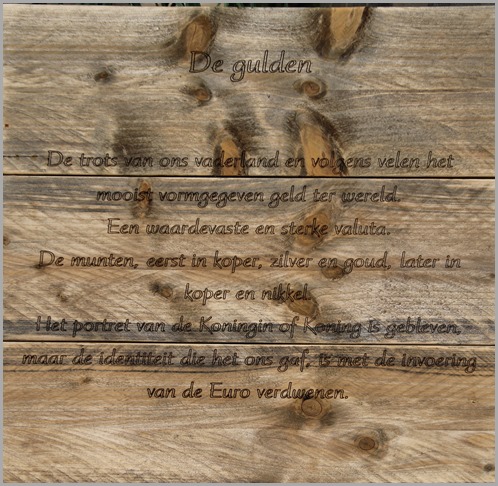 De gulden
De trots van ons vaderland en volgens velen het
mooist vormgegeven geld ter wereld.
Een waardevaste en sterke valuta.
De munten, eerst in koper, zilver en goud, later in
koper en nikkel.
Het portret van de Koningin of Koning is gebleven,
maar de identiteit die het ons gaf, is met de invoering
van de Euro verdwenen.